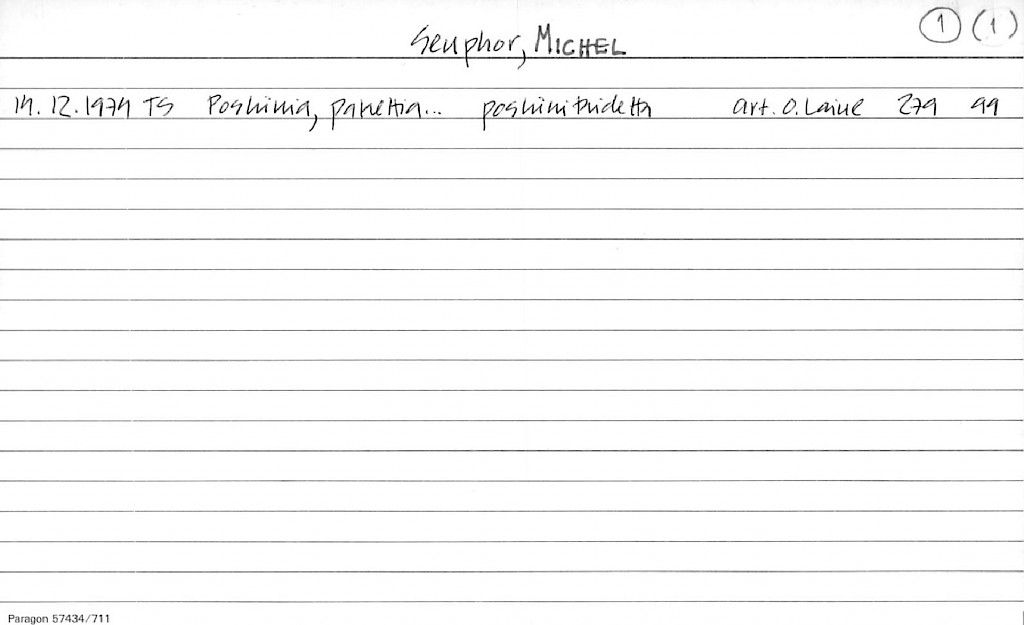 Seuphor, MICHEL 1 (1)
14.12.1974 TS Posliinia, pakettia... posliinitaidetta art. O. Laine 279 99
Paragon 57434/711